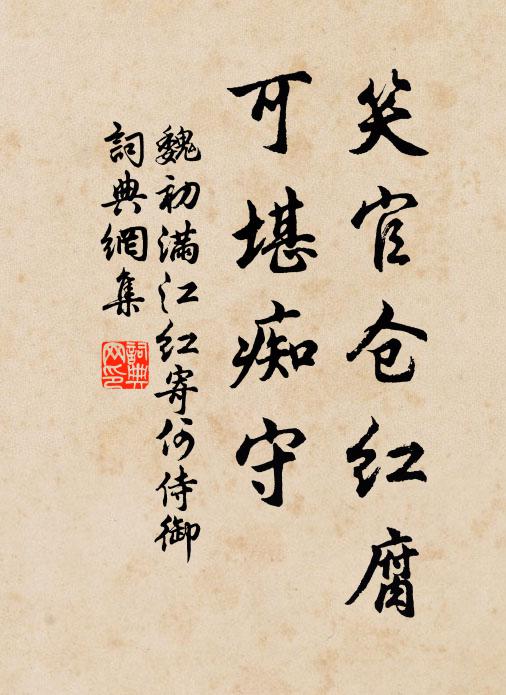 笑官仓红腐
可堪痴守
魏初满江红寄何侍御
詞典網集
詞典网印